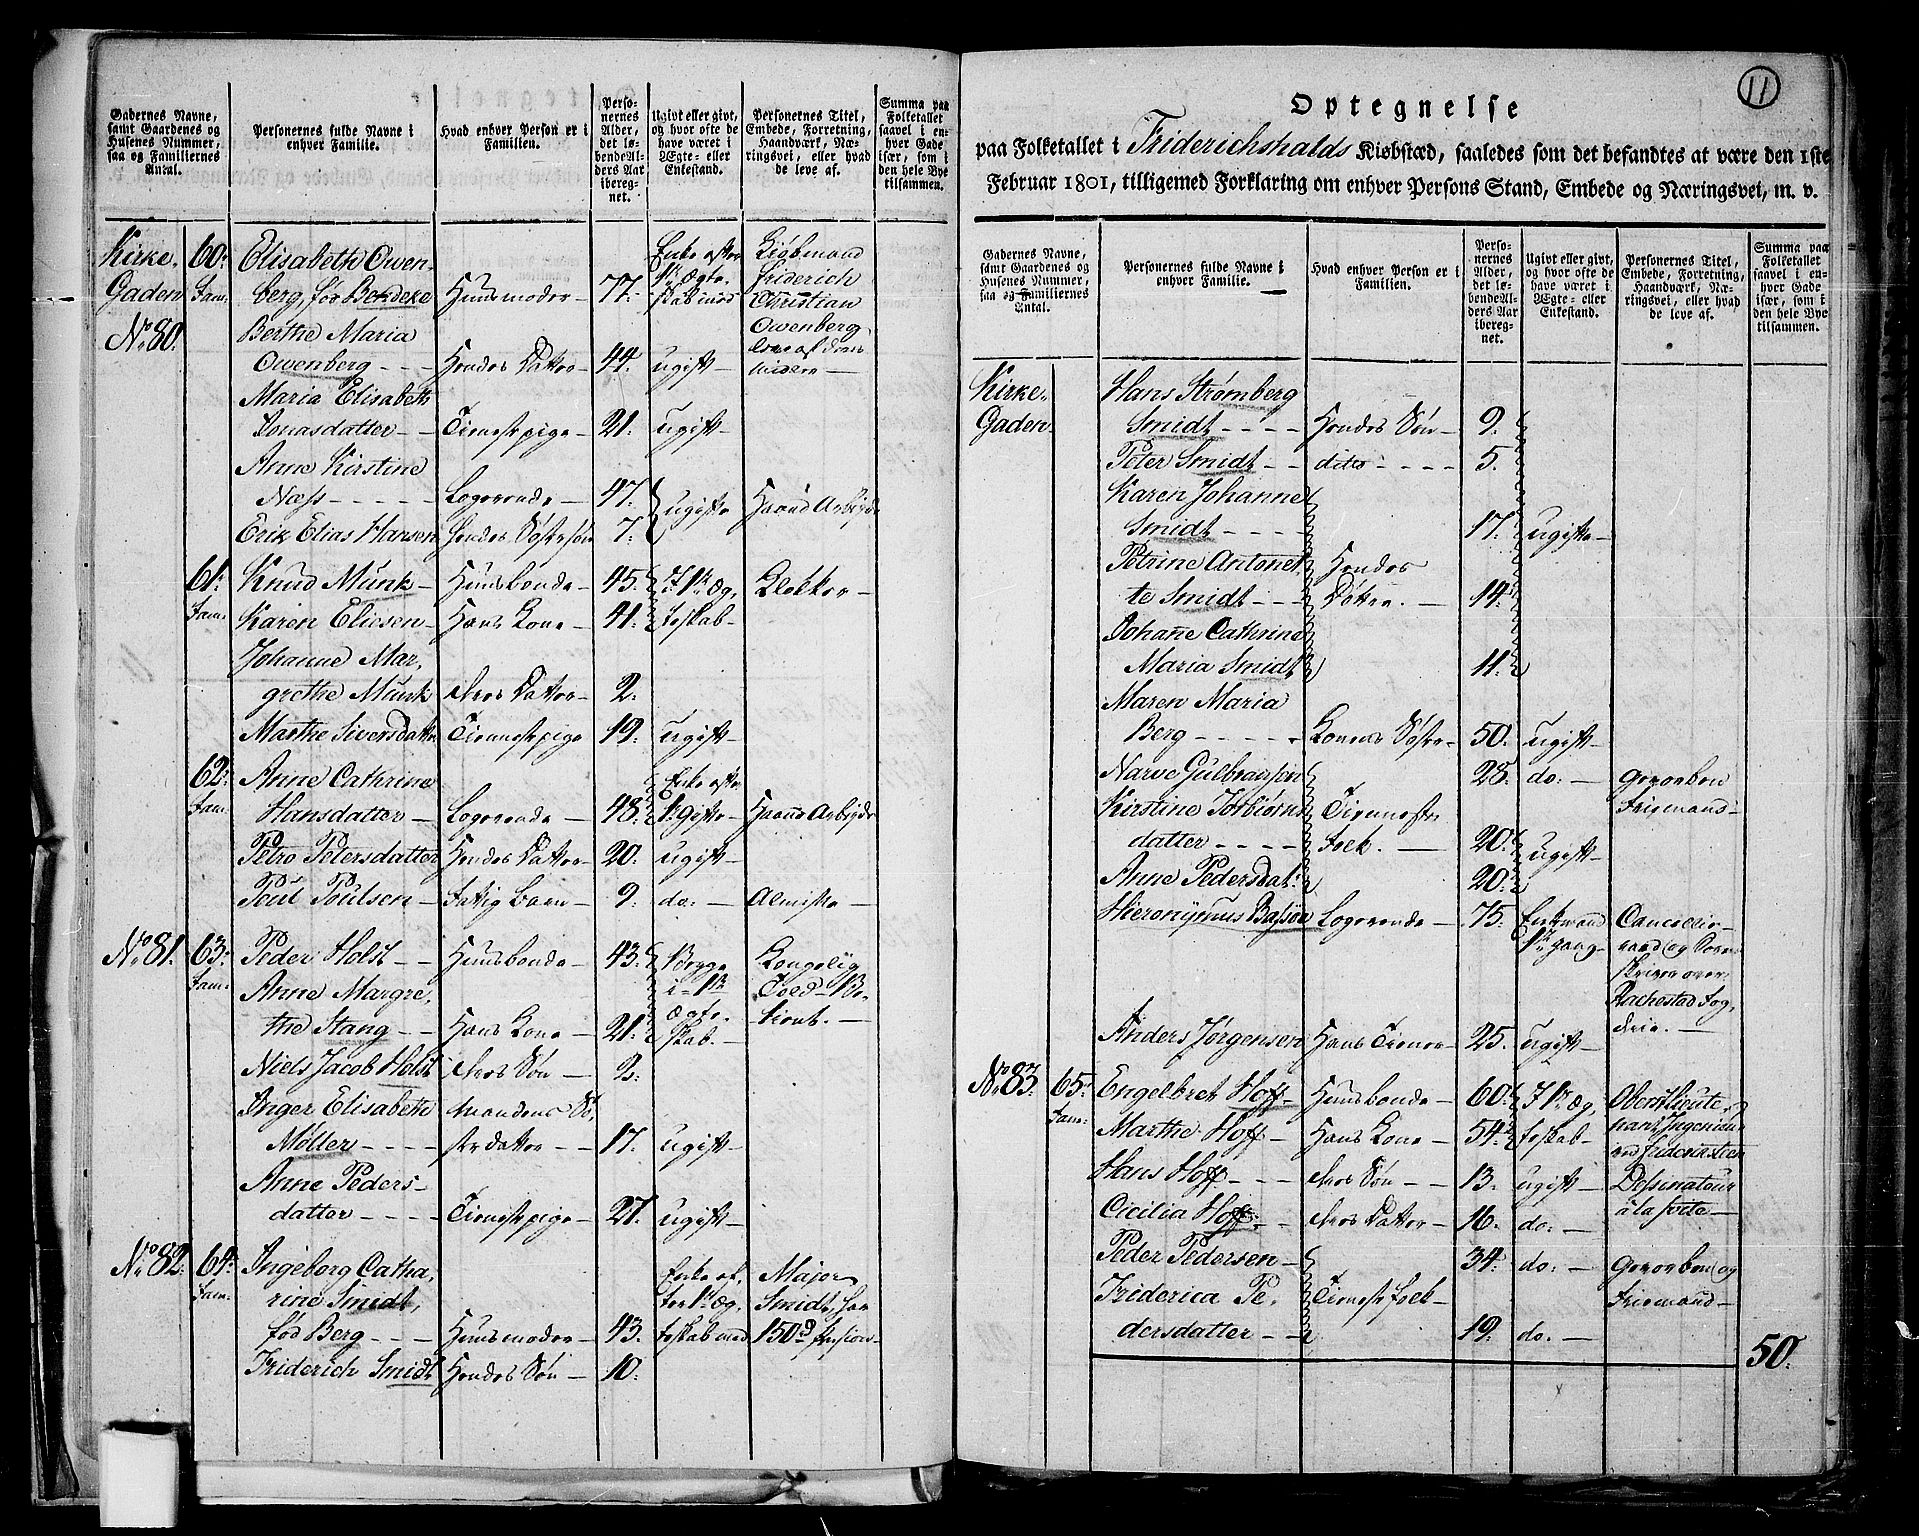 Gadernes Navne,
samt Gaardenes og
Husenes Nummer,
saa og Familiernes
Antal.
Personernes fulde Navne i
enhver Familie.
Hvad enhver Person er i
Familien.
Perso-
nernes
Alder,
det lø-
bende Al-
ders Aar
ibereg-
net.
Ugivt eller givt,
og hvor ofte de
have været i
Ægte- eller
Enkestand.
Personernes Titel,
Embede, Forretning,
Haandværk, Næ-
ringsvei, eller hvad
de leve af.
Summa paa
Folketallet
saavel i en-
hver Gade
især, som i
den hele Bye
tilsammen.
Kirke- 60: Elisabeth Owen-
Gaden Fam: berg, fød Bendeke Huusmoder- 77- Enke efter 1te Ægte- skab med Kiøbmand Friderich Christian Owenberg
No 80. Berthe Maria
Owenberg - - - Hendes Datter- 44. ugift-
Maria Elisabeth
Jonasdatter - - Tienestpige- 21. ugift-
Anne Kirstine
Næss - - - - - Logerende- 47. ugifte Haand Arbejde
Erik Elias Hansen Hendes Søstersøn 7.
61: Knud Munk- Huusbonde- 45. I 1te Æg, Klokker-
Fam: Karen Eliesen- Hans Kone- 41. teskab-
Johanne Mar,
grethe Munk deres Datter- 2.
Marthe Siversdatter Tienestpige 19. ugift-
62: Anne Cathrine
Fam: Hansdatter- Logerende- 48. Enke efter 1te Gifte- Haand Arbejde
Petro Petersdatter Hendes Datter- 20. ugift-
Poul Poulsen- Fattig Barn- 9. do: - Almisse-
No 81. 63: Peder Holst- Huusbonde- 43. Begge Kongelig
Fam: Anne Margre, i 1te Told-Be-
the Stang - - Hans Kone- 21. Ægte- skab. tient. -
Niels Jacob Holst deres Søn- 2.
Inger Elisabeth Mandens Sø,
Møller - - - - sterdatter- 17. ugift-
Anne Peders-
datter - - - - Tienestpige- 27. ugift-
No 82. 64: Ingeborg Catha, Enke ef, Major
Fam: rine Smidt, ter 1te Æg, Smidt, har
fød Berg - - - Huusmoder- 43. teskab med 150 rd Pension-
Friderich Smidt Hendes Søn- 10.
11
Optegnelse
paa Folketallet i Friderichshalds Kiøbstæd, saaledes som det befandtes at være den 1ste
Februar 1801, tilligemed Forklaring om enhver Persons Stand, Embede og Næringsvei, m. v.
Gadernes Navne,
samt Gaardenes og
Husenes Nummer,
saa og Familiernes
Antal.
Personernes fulde Navne i
enhver Familie.
Hvad enhver Person er i
Familien.
Perso-
nernes
Alder,
det lø-
bende Al-
ders Aar
ibereg-
net.
Ugivt eller givt,
og hvor ofte de
have været i
Ægte- eller
Enkestand.
Personernes Titel,
Embede, Forretning,
Haandværk, Næ-
ringsvei, eller hvad
de leve af.
Summa paa
Folketallet
saavel i en-
hver Gade
især, som i
den hele Bye
tilsammen.
Kirke- Hans Strømberg
Gaden- Smidt - - - - Hendes Søn- 9.
Peter Smidt - - dito - - - - 5.
Karen Johanne
Smidt - - - - 17. ugifte-
Petrine Antonet- Hendes
te Smidt - - - Døttre. - 14.
Johanne Cathrine
Maria Smidt 11.
Maren Maria
Berg - - - - - Konens Søster- 50. ugift-
Narve Gulbransen 28. do: - Gevorben
Kirstine Torbiørns Tieneste Friemand-
datter - - - - Folk. - 20. ugift-
Anne Pedersdat: 20.
Hieronymus Bassøe Logerende- 75. Enkemand Cancellie-
1te gang- raad og Soren-
skriver over
Rachestad Fog,
derie. -
Anders Jørgensen Hans Tiener- 25. ugift-
No 83. 65: Engelbret Hoff- Huusbonde- 60. I 1te Æg, Oberstlieute-
Fam: Marthe Hoff- Hans Kone- 54. teskab- nant, Ingenieur
ved Friderikssteen
Hans Hoff - - - deres Søn- 13. ugift- Dessinateur
Cicilia Hoff - - deres Datter- 16. do: - a la suite-
Peder Pedersen- 34. do: - Gevorben og
Friderica Pe, Tienestefolk- Friemand-
dersdatter - - 19. do: -
50.